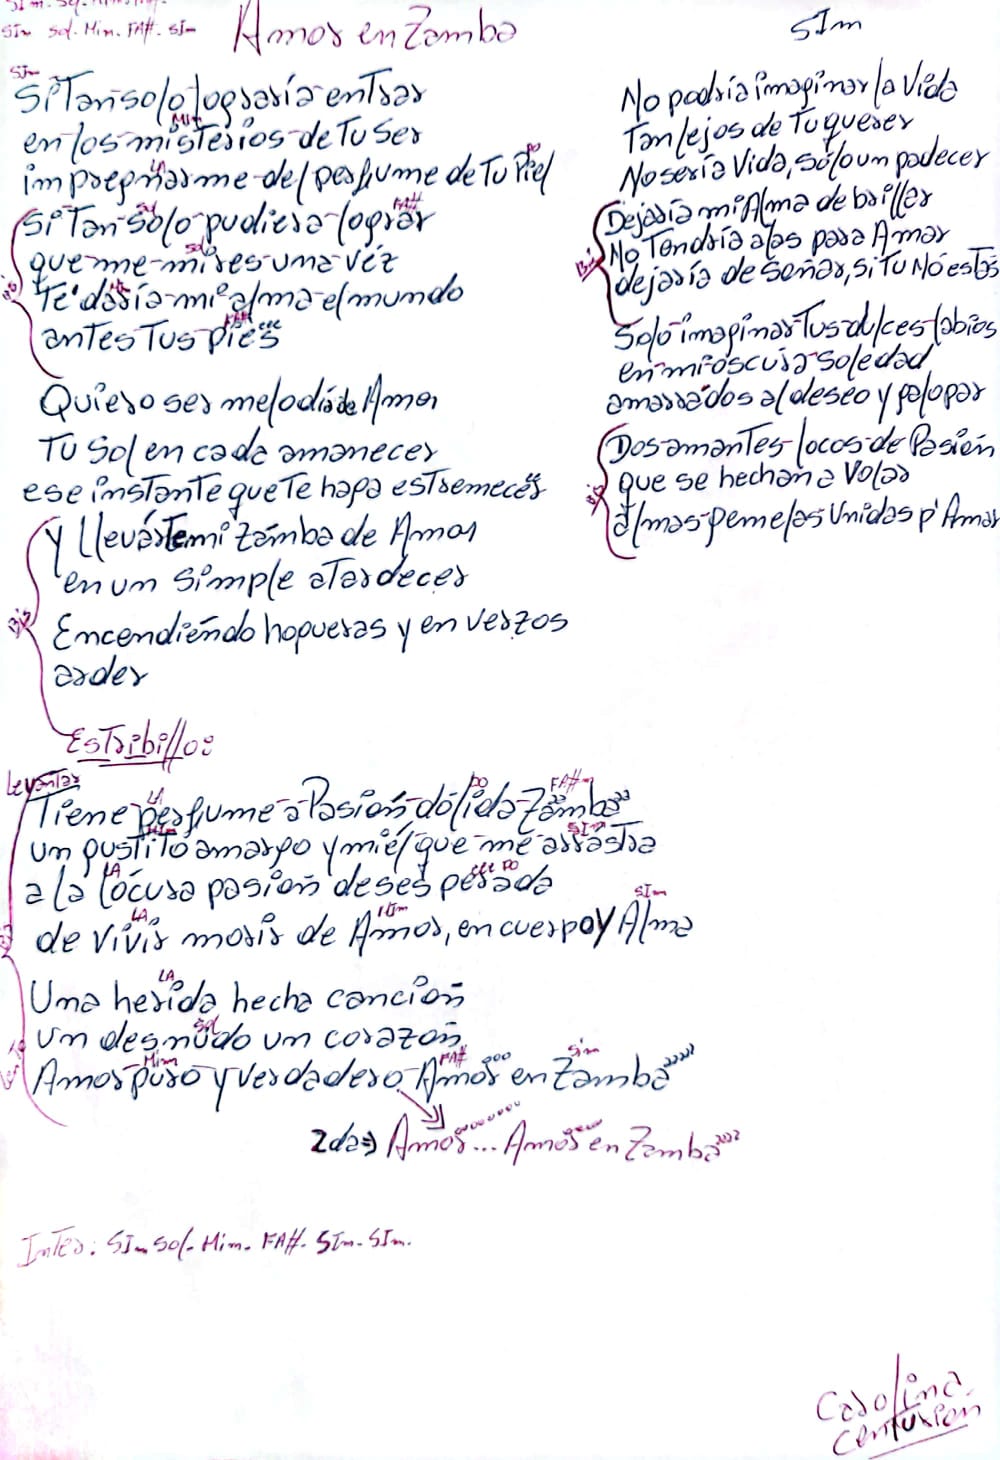 SIm Sol. Mim. FA#. SIm
Amor en Zamba
SIm
SIm
Si Tan solo lograría entrar
en los misterios de Tu Ser
MIm
impregnarme del perfume de Tu Piel
LA
RE
Si Tan solo pudiera lograr
Sol
FA#
que me mires una véz
Te daría mi alma el mundo
antes Tus piés
FA#
Bis
Quiero ser melodía de Amor
TU Sol en cada amanecer
ese instante que Te haga estremecer
y Llevárte mi Zamba de Amor
en un simple atardecer
Encendiéndo hogueras y en verzos
arder
Bis
Estribillo:
Levantar
Tiene perfume a Pasión dólida Zamba
LA
DO
FA#
un gustito amargo y miél que me arrastra
MIm
SIm
a la lócura pasión desesperada
LA
de vivir morir de Amor, en cuerpo y Alma
LA
SIm
Una herida hecha canción
LA
un desnudo un corazón
Sol
Amor puro y verdadero Amor en Zamba
Mim
FA#
Sim
2da Amor... Amor en Zamba
Inter: SIm Sol. Mim. FA#. SIm. SIm.
No podría imaginar la Vida
Tan lejos de Tu querer
No sería Vida, sólo un padecer
Dejaría mi Alma de brillar
No Tendría alas para Amar
dejaría de Soñar, si TU NO estás
Bis
Solo imaginar Tus dulces labios
en mi óscura soledad
amarrados al deseo y galopar
Dos amantes locos de Pasión
que se hechan a Volar
almas gemelas Unidas p' Amar
Bis
Carolina
Centurión